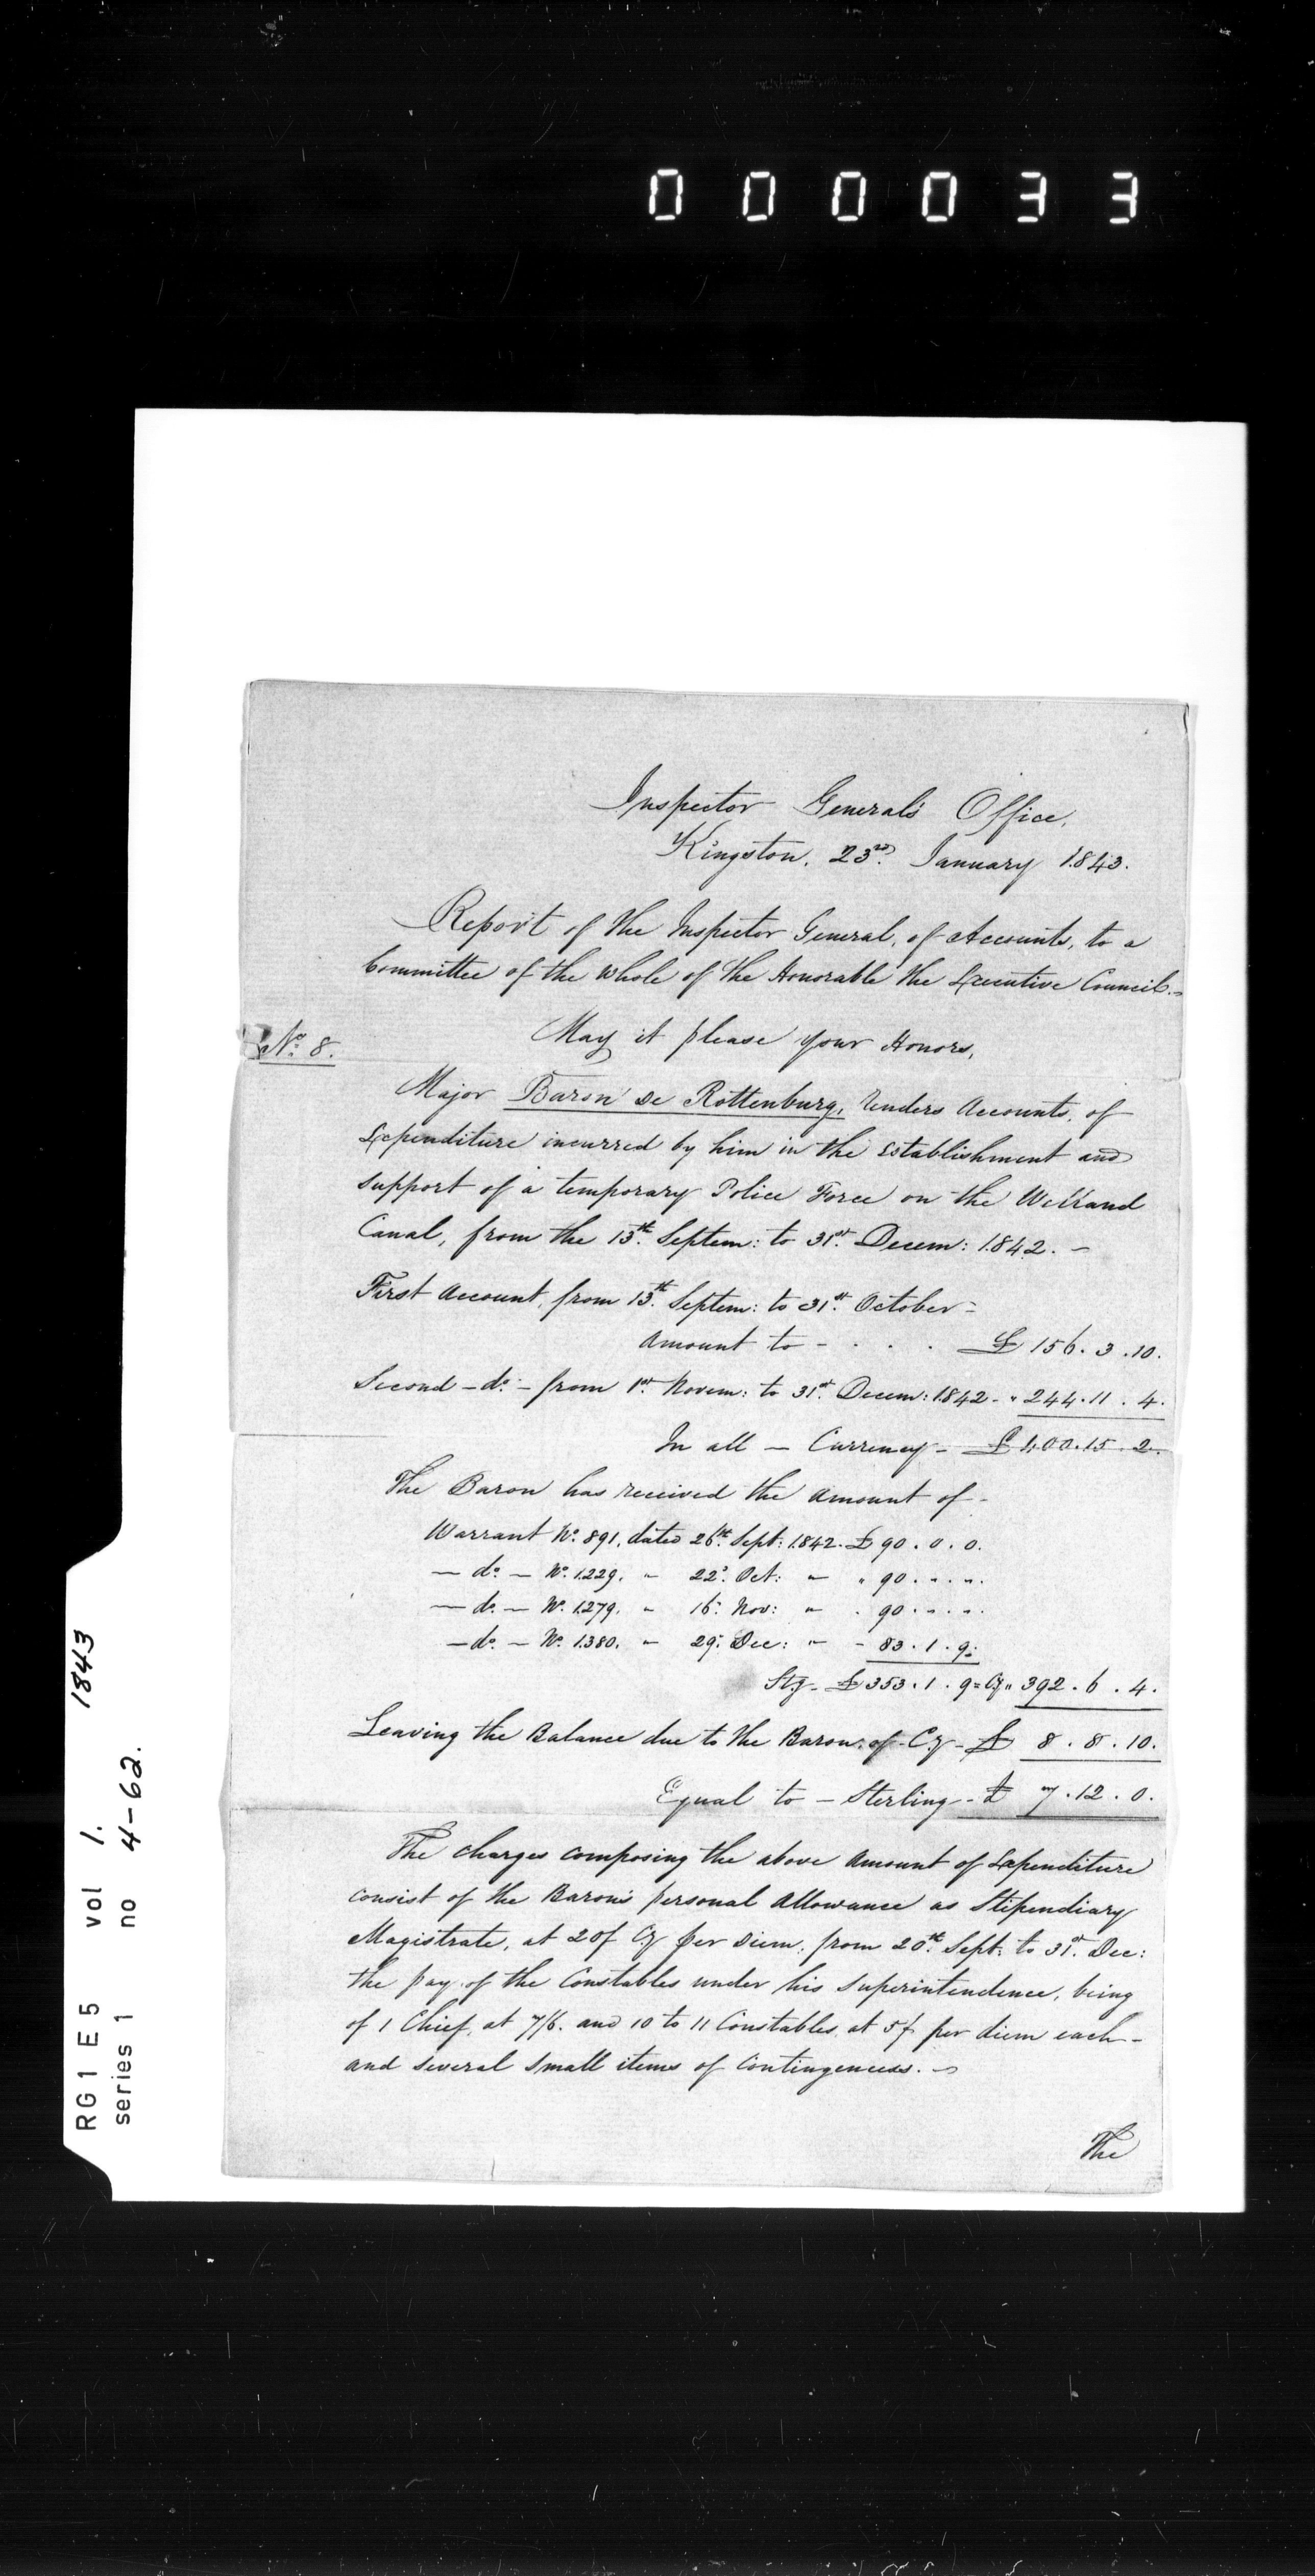 000033
Inspector General's Office,
Kingston, 23rd January 1843.
Report of the Inspector General, of Accounts, to a
Committee of the Whole of the Honorable the Executive Council.
May it please your Honors,
No. 8.
Major Baron de Rottenburg, renders Accounts, of
Expenditure incurred by him in the Establishment and
support of a temporary Police Force on the Welland
Canal, from the 13th Septem: to 31st Decem: 1842. -
First Account, from 13th Septem: to 31st October -
Amount to - . . . £ 156. 3. 10.
Second - do - from 1st Novem: to 31st Decem: 1842 - " 244. 11. 4.
In all - Currency - £ 400. 15. 2.
The Baron has received the Amount of -
Warrant No. 891, dated 26th Sept: 1842. £ 90. 0. 0.
- do. - No. 1229. " 22d Oct: " " 90. " . ".
- do. - No. 1279. " 16: Nov: " . 90. " . ".
- do. - No. 1380. " 29: Dec: " - 83. 1. 9.
Stg - £ 353. 1. 9 = Cy " 392. 6. 4.
Leaving the Balance due to the Baron, of - Cy - £ 8. 8. 10.
Equal to - Sterling - £ 7. 12. 0.
The charges composing the above Amount of Expenditure
consist of the Baron's personal Allowance as Stipendiary
Magistrate, at 20/ Cy per diem, from 20th Sept: to 31st Dec:
the pay of the Constables under his superintendence, being
of 1 Chief, at 7/6. and 10 to 11 Constables, at 5/ per diem each -
and several small items of Contingencies. -
The
RG1 E5 vol 1. 1843
series 1 no 4-62.